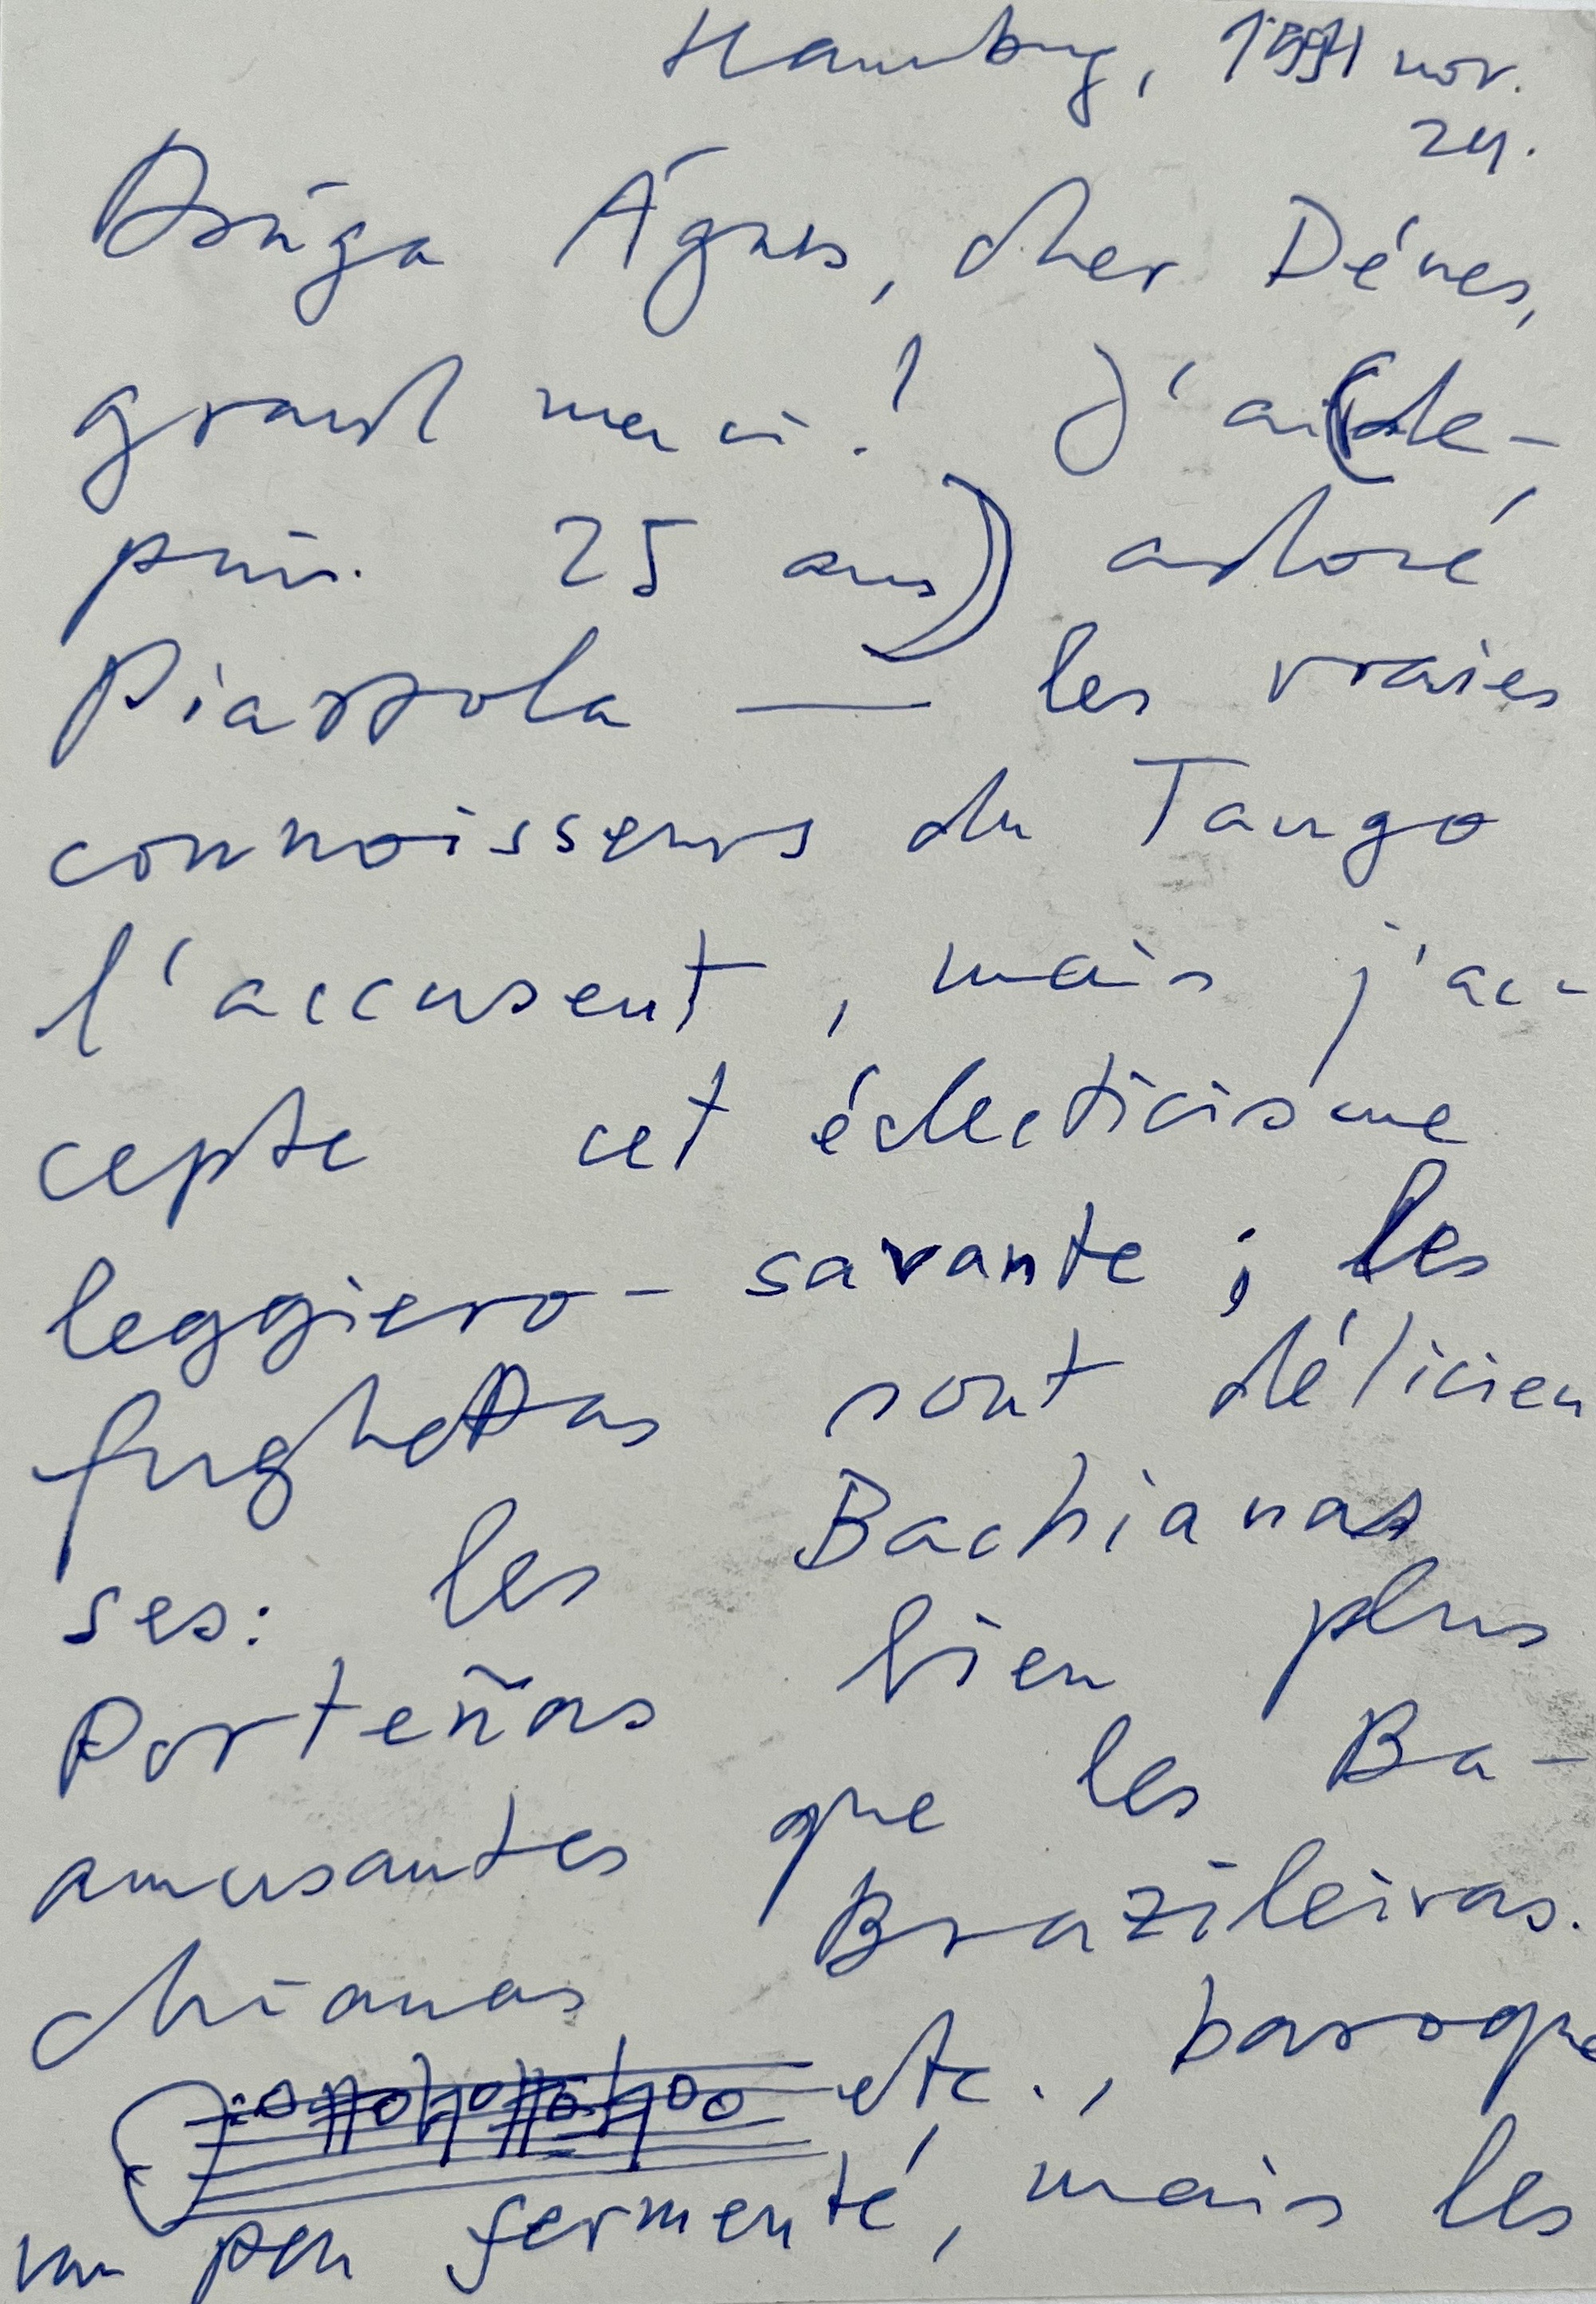 Hamburg, 1991 nov.
24.
Drága Ágnes, cher Dénes,
grand merci! J'ai (de-
puis 25 ans) adoré
Piazzola — les vraies
connoisseurs du Tango
l'accusent, mais j'ac-
cepte cet éclecticisme
leggiero-savante; les
fughettas sont délicieu
ses: les Bachianas
Porteñas bien plus
amusantes que les Ba-
chianas Brazileiras.
etc., baroque
un peu fermenté, mais les